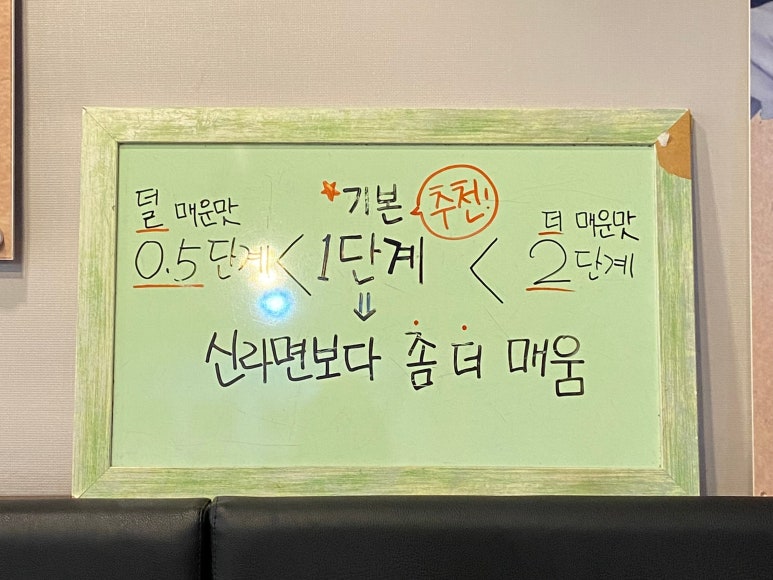 덜 매운맛
0.5단계
<
기본 추천!
1단계
<
더 매운맛
2단계
⇓
신라면보다 좀 더 매움